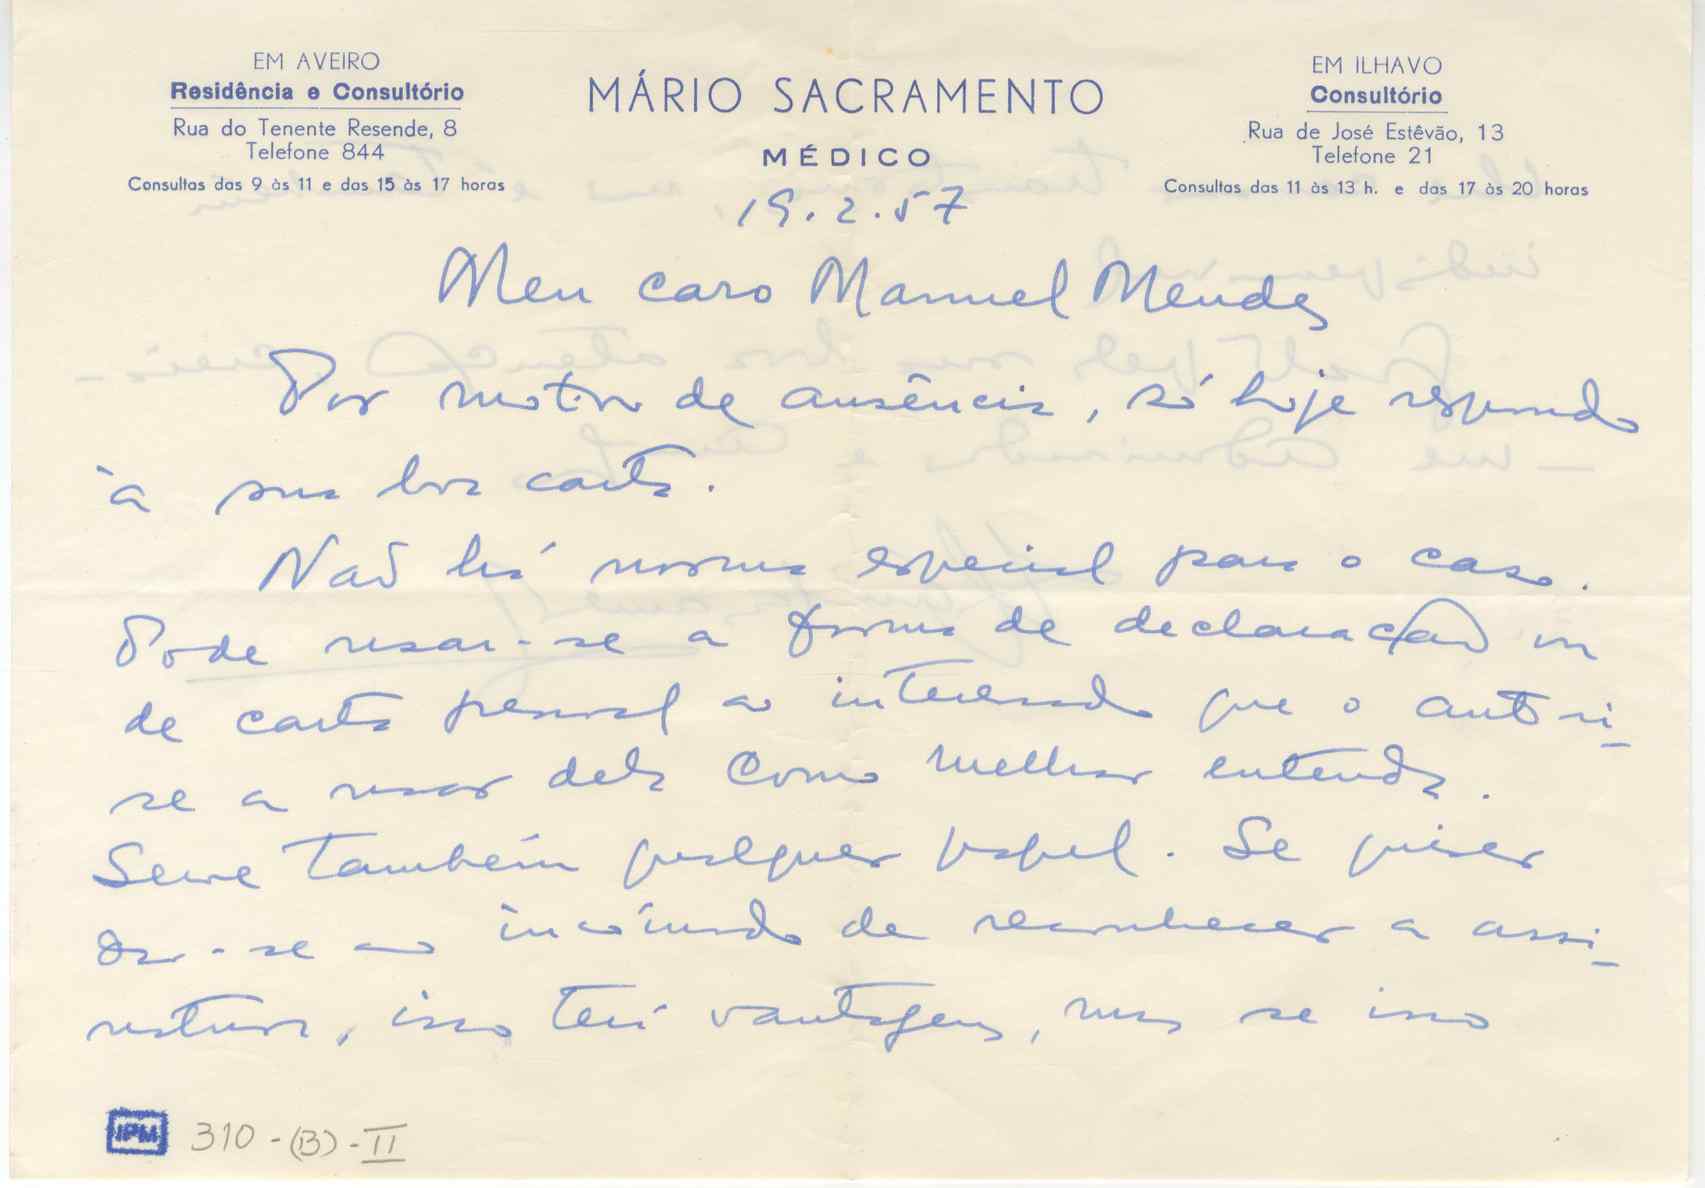 EM AVEIRO
Residência e Consultório
Rua do Tenente Resende, 8
Telefone 844
Consultas das 9 às 11 e das 15 às 17 horas
MÁRIO SACRAMENTO
MÉDICO
EM ILHAVO
Consultório
Rua de José Estêvão, 13
Telefone 21
Consultas das 11 às 13 h. e das 17 às 20 horas
19.2.57
Meu caro Manuel Mendes
Por motivo de ausência, só hoje respondo
à sua boa carta.
Não há norma especial para o caso.
Pode usar-se a forma de declaração ou
de carta pessoal ao interessado que o autori-
se a usar dela como melhor entenda.
Serve também qualquer papel. Se quiser
dar-se ao incómodo de reconhecer a assi-
natura, isso terá vantagens, mas se isso
IPM 310-(B)-II